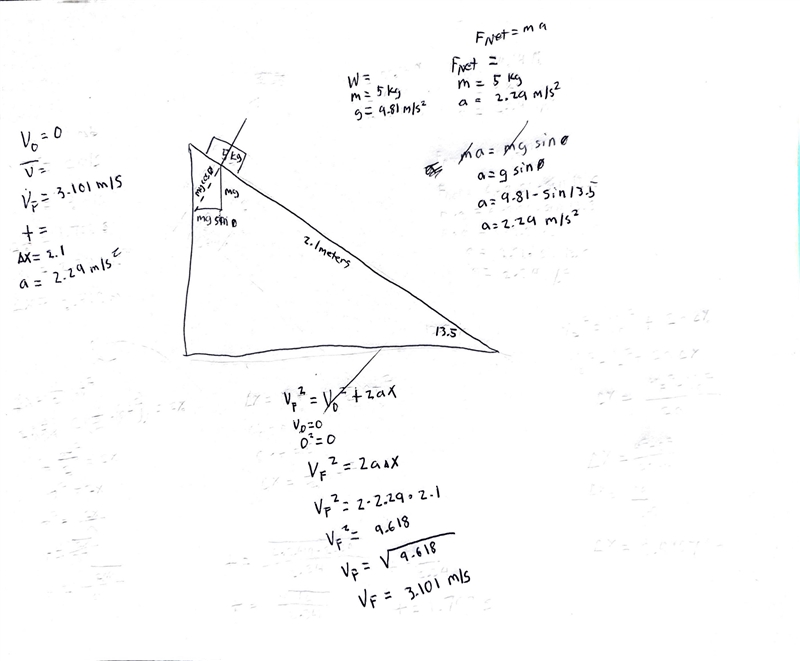 F_Net = ma
W =
m = 5 kg
g = 9.81 m/s²
F_Net =
m = 5 kg
a = 2.29 m/s²
V₀ = 0
V̅ =
V_F = 3.101 m/s
t =
Δx = 2.1
a = 2.29 m/s²
5 kg
mg cosθ
mg
mg sin θ
2.1 meters
13.5
ma = mg sin θ
a = g sin θ
a = 9.81 - sin 13.5
a = 2.29 m/s²
V_F² = V₀² + 2ax
V₀ = 0
0² = 0
V_F² = 2aΔx
V_F² = 2 · 2.29 · 2.1
V_F² = 9.618
V_F = √9.618
V_F = 3.101 m/s